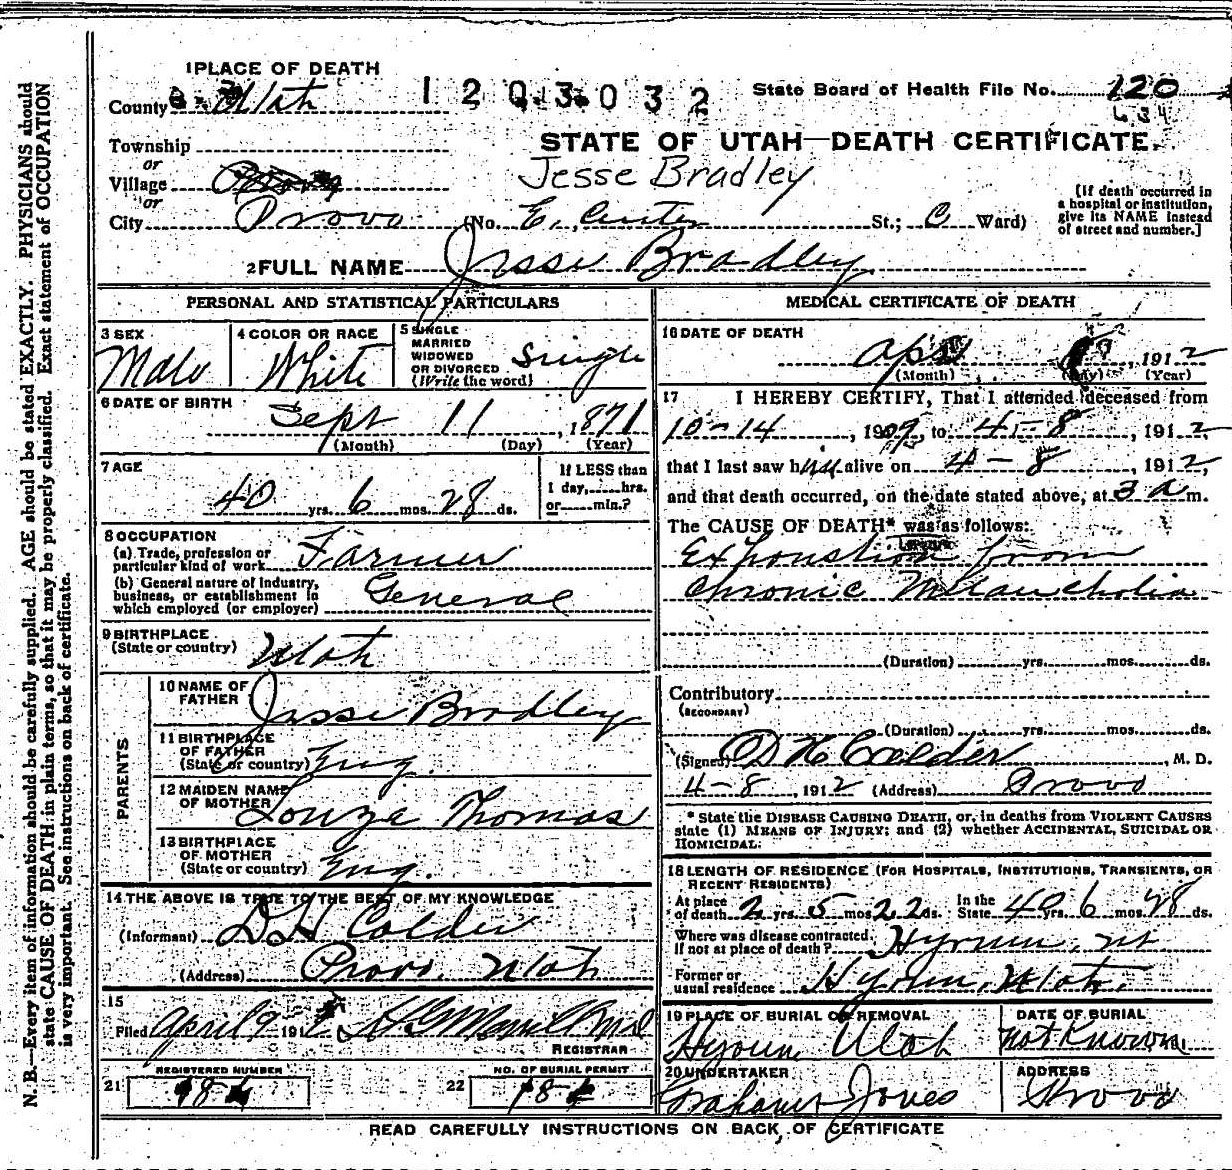 1 PLACE OF DEATH
County Utah
1203032
State Board of Health File No. 120
634
STATE OF UTAH—DEATH CERTIFICATE.
Township
or
Village
or
City Provo (No. E. Center St.; C Ward)
Jesse Bradley
[If death occurred in
a hospital or institution,
give its NAME instead
of street and number.]
2 FULL NAME Jesse Bradley
PERSONAL AND STATISTICAL PARTICULARS
3 SEX
Male
4 COLOR OR RACE
White
5 SINGLE
MARRIED
WIDOWED
OR DIVORCED
(Write the word)
Single
6 DATE OF BIRTH
Sept 11, 1871
(Month) (Day) (Year)
7 AGE
40 yrs. 6 mos. 28 ds.
If LESS than
1 day, hrs.
or min.?
8 OCCUPATION
(a) Trade, profession or
particular kind of work Farmer
(b) General nature of industry,
business, or establishment in
which employed (or employer) General
9 BIRTHPLACE
(State or country) Utah
PARENTS
10 NAME OF
FATHER Jesse Bradley
11 BIRTHPLACE
OF FATHER
(State or country) Eng.
12 MAIDEN NAME
OF MOTHER Louza Thomas
13 BIRTHPLACE
OF MOTHER
(State or country) Eng.
14 THE ABOVE IS TRUE TO THE BEST OF MY KNOWLEDGE
(Informant) D H Calder
(Address) Provo. Utah
15
Filed April 9 1912
REGISTRAR
21 REGISTERED NUMBER
22 NO. OF BURIAL PERMIT
MEDICAL CERTIFICATE OF DEATH
16 DATE OF DEATH
Apr , 1912
(Month) (Day) (Year)
17 I HEREBY CERTIFY, That I attended deceased from
10-14, 1909, to 4-8, 1912,
that I last saw him alive on 4-8, 1912,
and that death occurred, on the date stated above, at 3 a m.
The CAUSE OF DEATH* was as follows:
Exhoustion from
Chronic Melancholia
(Duration) yrs. mos. ds.
Contributory
(SECONDARY)
(Duration) yrs. mos. ds.
(Signed) D H Calder, M. D.
4-8, 1912 (Address) Provo
* State the DISEASE CAUSING DEATH, or, in deaths from VIOLENT CAUSES
state (1) MEANS OF INJURY; and (2) whether ACCIDENTAL, SUICIDAL OR
HOMICIDAL.
18 LENGTH OF RESIDENCE (FOR HOSPITALS, INSTITUTIONS, TRANSIENTS, OR
RECENT RESIDENTS)
At place
of death 2 yrs. 5 mos. 22 ds. In the
State 40 yrs. 6 mos. 28 ds.
Where was disease contracted,
If not at place of death? Hyrum, Ut
Former or
usual residence Hyrum, Utah.
19 PLACE OF BURIAL OR REMOVAL
Hyrum, Utah
DATE OF BURIAL
Not Known
20 UNDERTAKER
Jones
ADDRESS
Provo
READ CAREFULLY INSTRUCTIONS ON BACK OF CERTIFICATE
N. B.—Every item of information should be carefully supplied. AGE should be stated EXACTLY. PHYSICIANS should
state CAUSE OF DEATH in plain terms, so that it may be properly classified. Exact statement of OCCUPATION
is very important. See instructions on back of certificate.